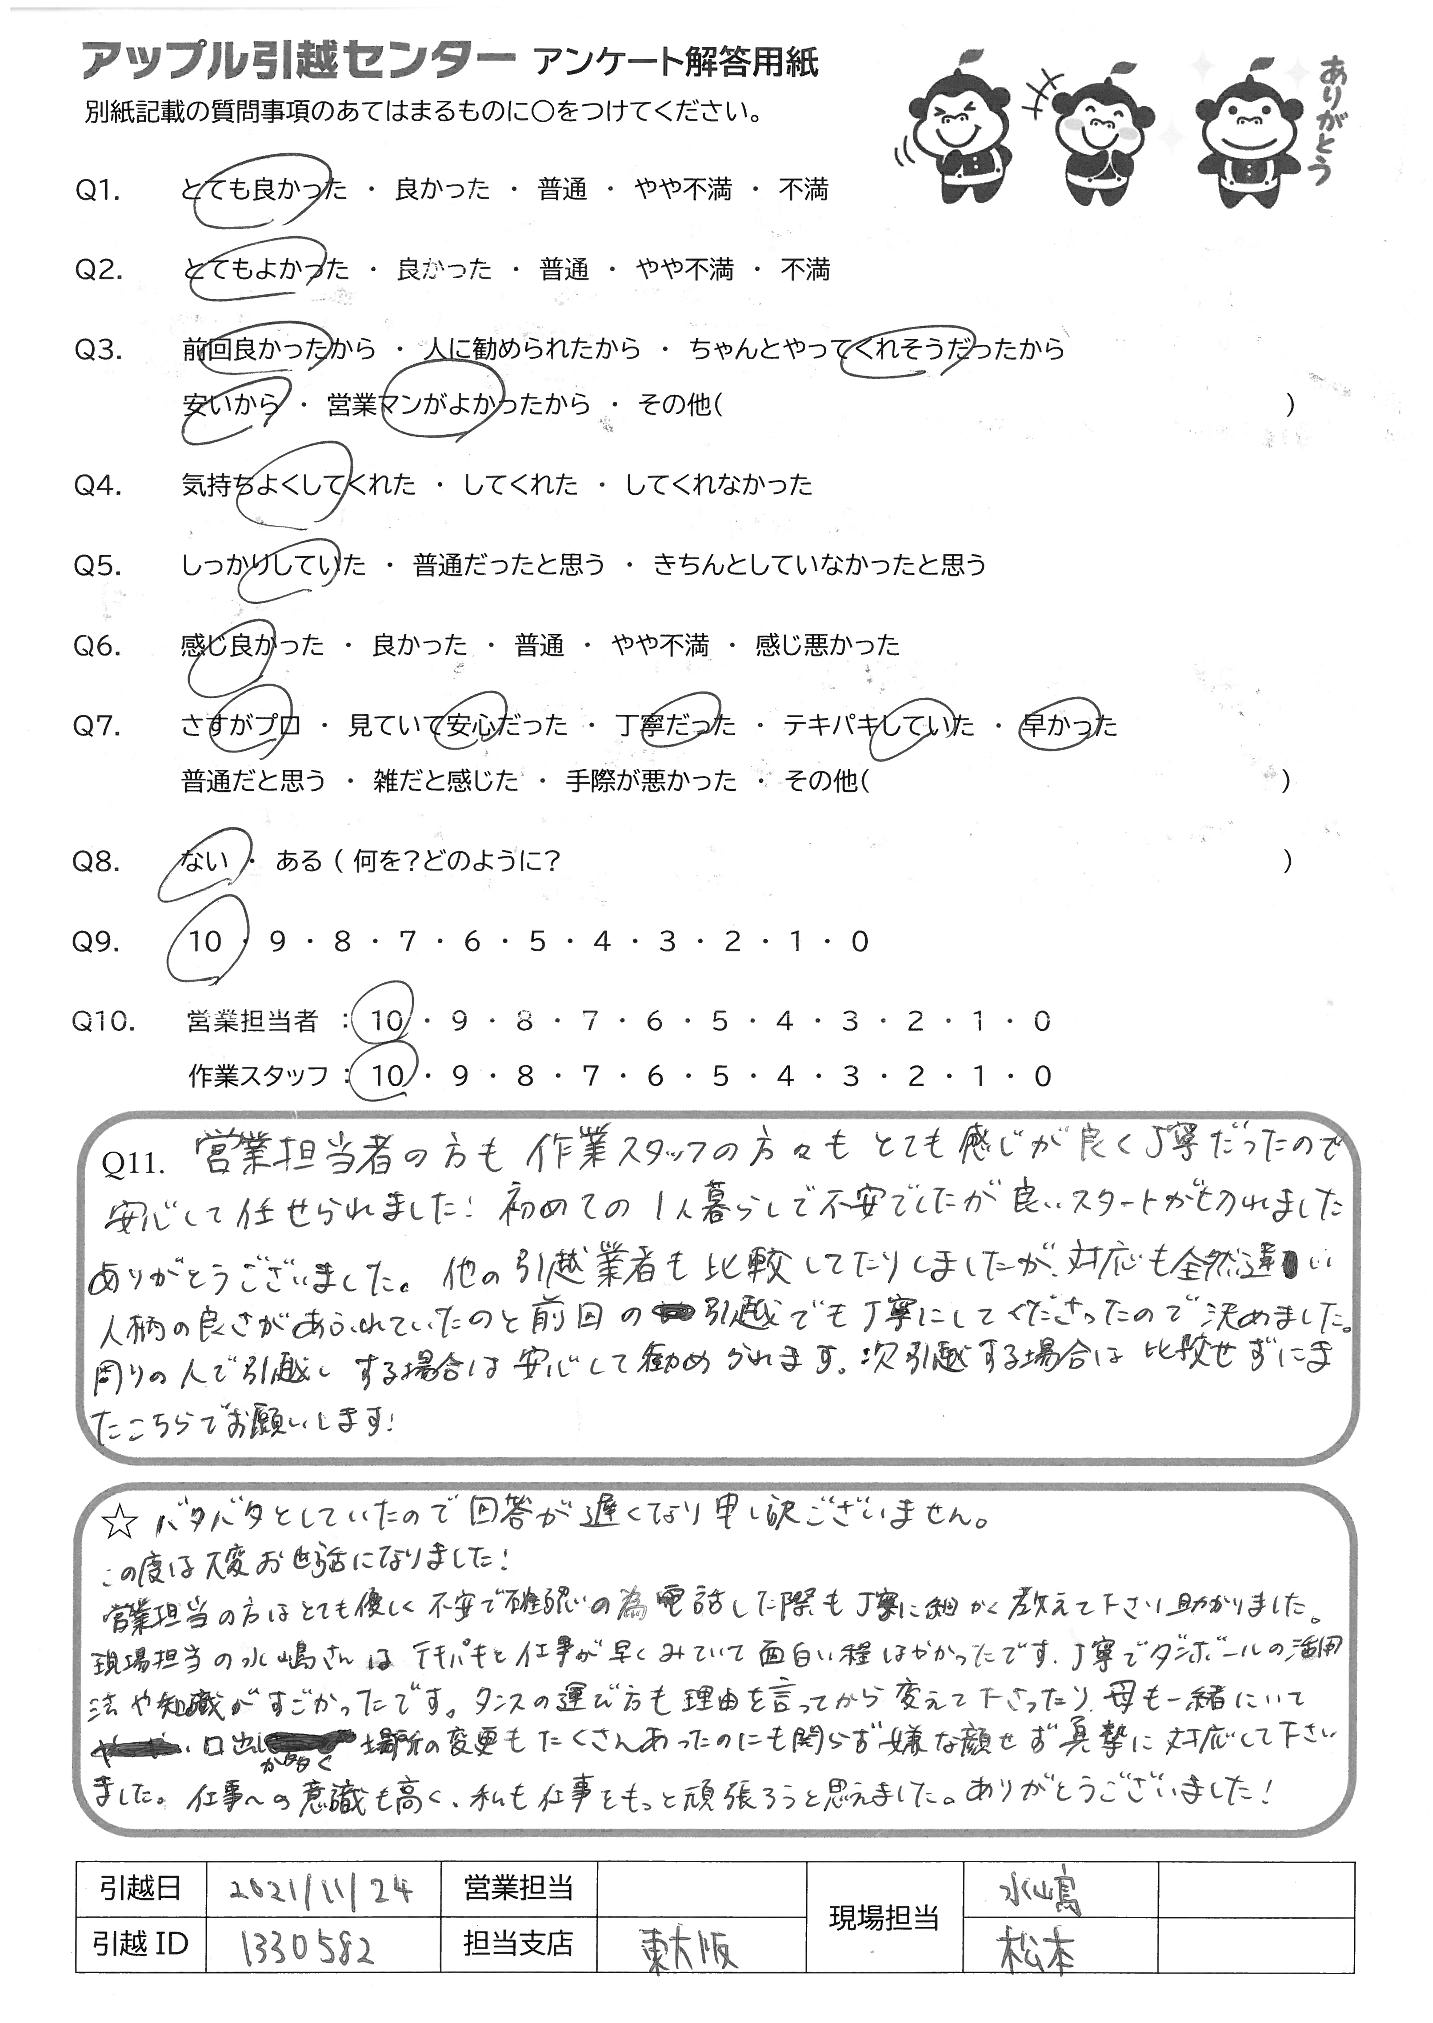 アップル引越センター アンケート解答用紙
ありがとう
別紙記載の質問事項のあてはまるものに○をつけてください。
Q1. とても良かった ・ 良かった ・ 普通 ・ やや不満 ・ 不満
Q2. とてもよかった ・ 良かった ・ 普通 ・ やや不満 ・ 不満
Q3. 前回良かったから ・ 人に勧められたから ・ ちゃんとやってくれそうだったから
安いから ・ 営業マンがよかったから ・ その他( )
Q4. 気持ちよくしてくれた ・ してくれた ・ してくれなかった
Q5. しっかりしていた ・ 普通だったと思う ・ きちんとしていなかったと思う
Q6. 感じ良かった ・ 良かった ・ 普通 ・ やや不満 ・ 感じ悪かった
Q7. さすがプロ ・ 見ていて安心だった ・ 丁寧だった ・ テキパキしていた ・ 早かった
普通だと思う ・ 雑だと感じた ・ 手際が悪かった ・ その他( )
Q8. ない ・ ある ( 何を?どのように? )
Q9. 10 ・ 9 ・ 8 ・ 7 ・ 6 ・ 5 ・ 4 ・ 3 ・ 2 ・ 1 ・ 0
Q10. 営業担当者 : 10 ・ 9 ・ 8 ・ 7 ・ 6 ・ 5 ・ 4 ・ 3 ・ 2 ・ 1 ・ 0
作業スタッフ : 10 ・ 9 ・ 8 ・ 7 ・ 6 ・ 5 ・ 4 ・ 3 ・ 2 ・ 1 ・ 0
Q11. 営業担当者の方も作業スタッフの方々もとても感じが良く丁寧だったので
安心して任せられました! 初めての1人暮らしで不安でしたが良いスタートが切れました
ありがとうございました。他の引越業者も比較してたりしましたが、対応も全然違い
人柄の良さがあふれていたのと前回の引越でも丁寧にしてくださったので決めました。
周りの人で引越しする場合は安心して勧められます。次引越する場合は比較せずにま
たこちらでお願いします!
☆ バタバタとしていたので回答が遅くなり申し訳ございません。
この度は大変お世話になりました!
営業担当の方はとても優しく不安で確認の為電話した際も丁寧に細かく教えて下さり助かりました。
現場担当の水嶋さんはテキパキと仕事が早くみていて面白い程はやかったです。丁寧でダンボールの活用
法や知識がすごかったです。タンスの運び方も理由を言ってから変えて下さったり、母も一緒にいて
口出しが多く場所の変更もたくさんあったのにも関らず嫌な顔せず真摯に対応して下さい
ました。仕事への意識も高く、私も仕事をもっと頑張ろうと思えました。ありがとうございました!
引越日 2021/11/24 営業担当 現場担当 水嶋
引越ID 1330582 担当支店 東大阪 松本